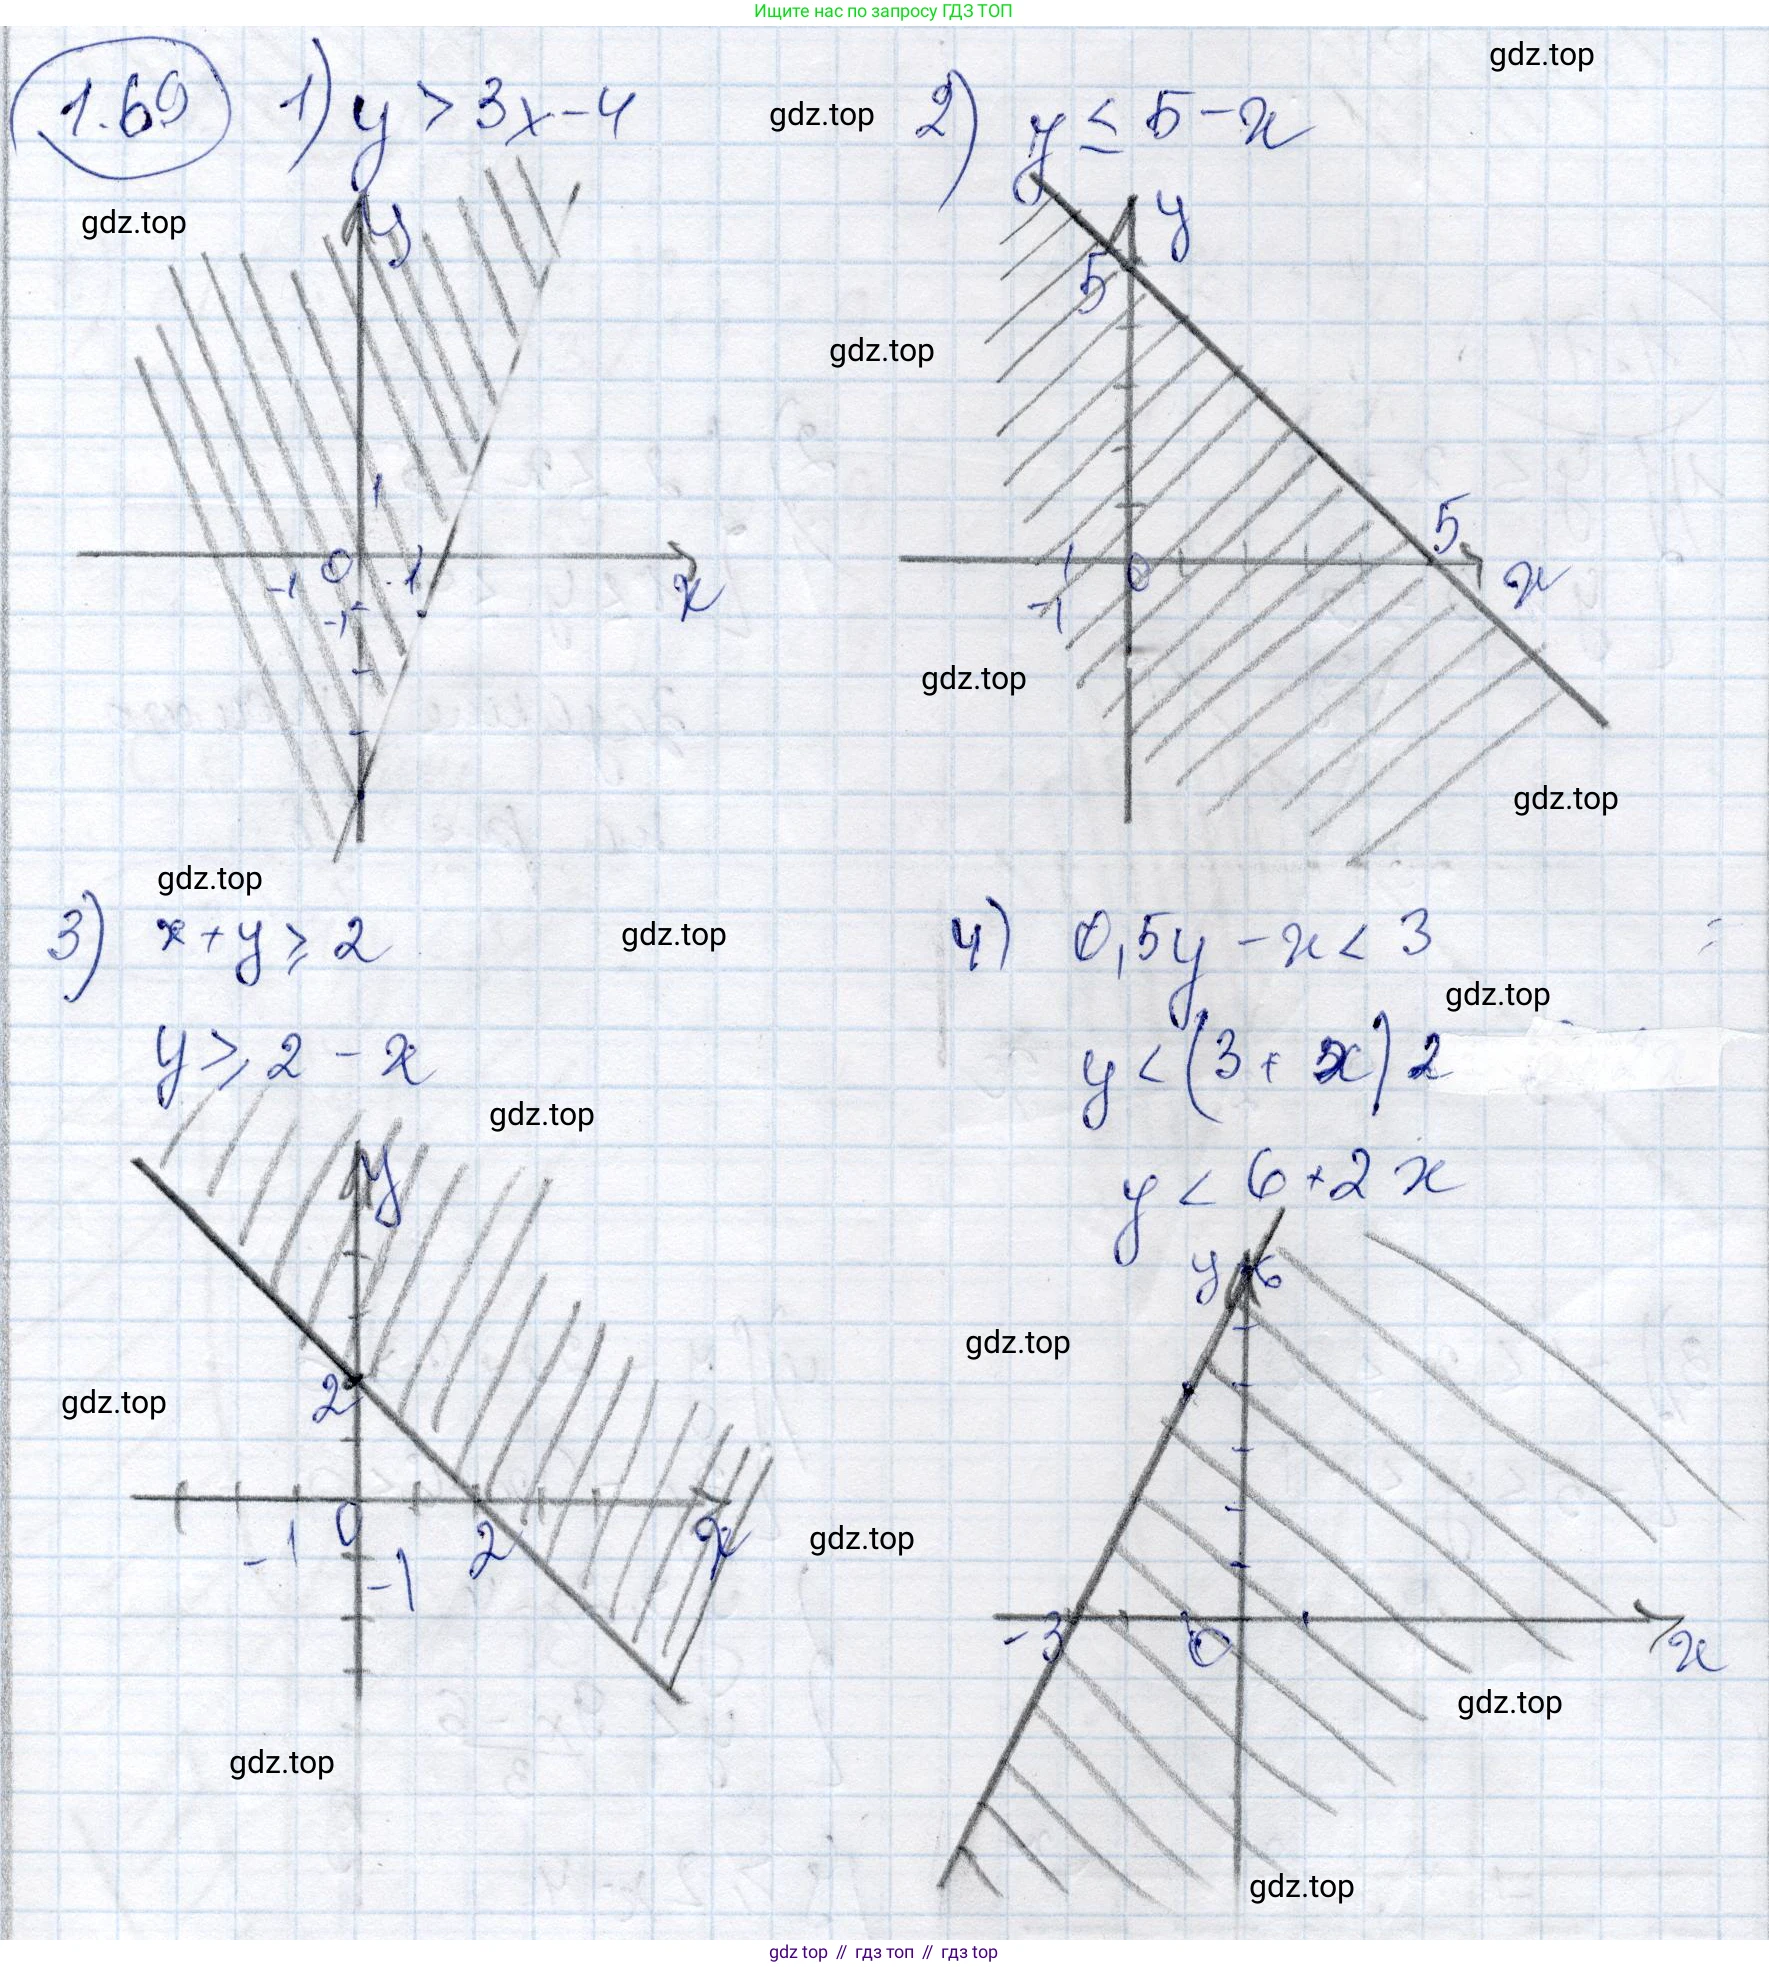 Ищите нас по запросу ГДЗ ТОП
gdz.top
1.69 1) y > 3x-4
gdz.top
2) y ≤ 5-x
gdz.top
y
y
5
gdz.top
1
0
-1
1
-1
x
5
0
-1
x
gdz.top
gdz.top
gdz.top
3) x+y ≥ 2
gdz.top
4) 0,5y - x < 3
gdz.top
y ≥ 2 - x
y < (3 + x) 2
gdz.top
y < 6+2x
y
y 6
gdz.top
2
gdz.top
0
-1
-1
2
x
gdz.top
-3
0
x
gdz.top
gdz.top
gdz.top
gdz top // гдз топ // gdz top